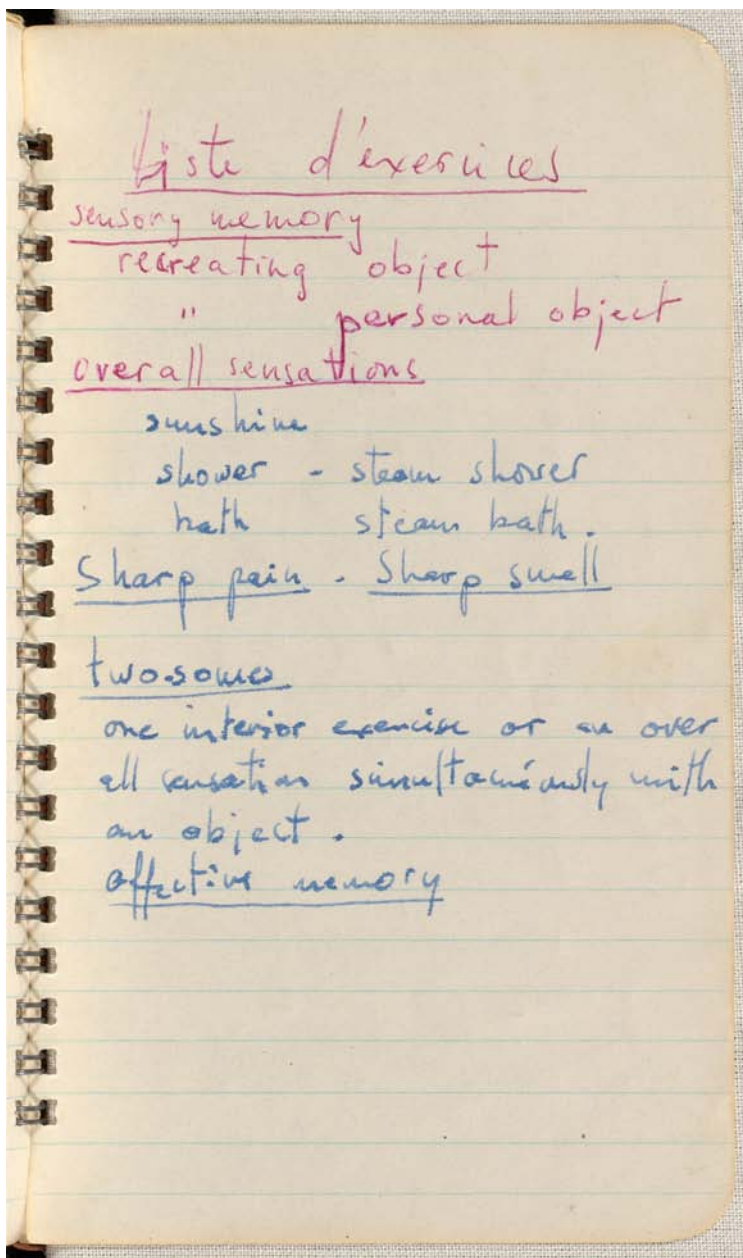 Liste d'exercices
sensory memory
recreating object
" personal object
overall sensations
sunshine
shower - steam shower
bath steam bath.
Sharp pain - Sharp smell
two-somes
one interior exercise or an over
all sensation simultaneously with
an object.
affective memory